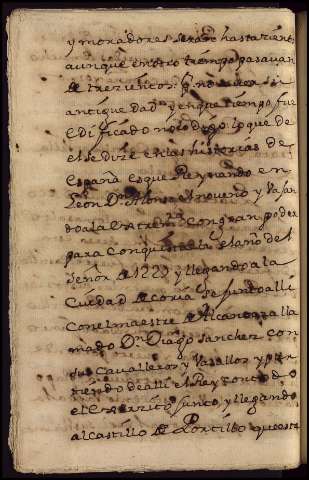 y moradores seran hasta ziento
aunque en otro tiempo pasavan
de trezientos. no
antigue dad y en que tiempo fue
edificado no lo digo lo que de
el se dize en las historias de
españa es que Reynando en
Leon Dn Alonso el noveno y vajan
do a la estrem.ra con gran poder
para conquistarla el año del
señor de 1220 y llegando a la
ciudad de coria se junto alli
con el maestre de Alcantara lla
mado Dn Diago sanchez con
sus cavalleros y vasallos y par
tiendo de alli el Rey con todo
el exercito junto, y llegando
al castillo de Portillo que esta